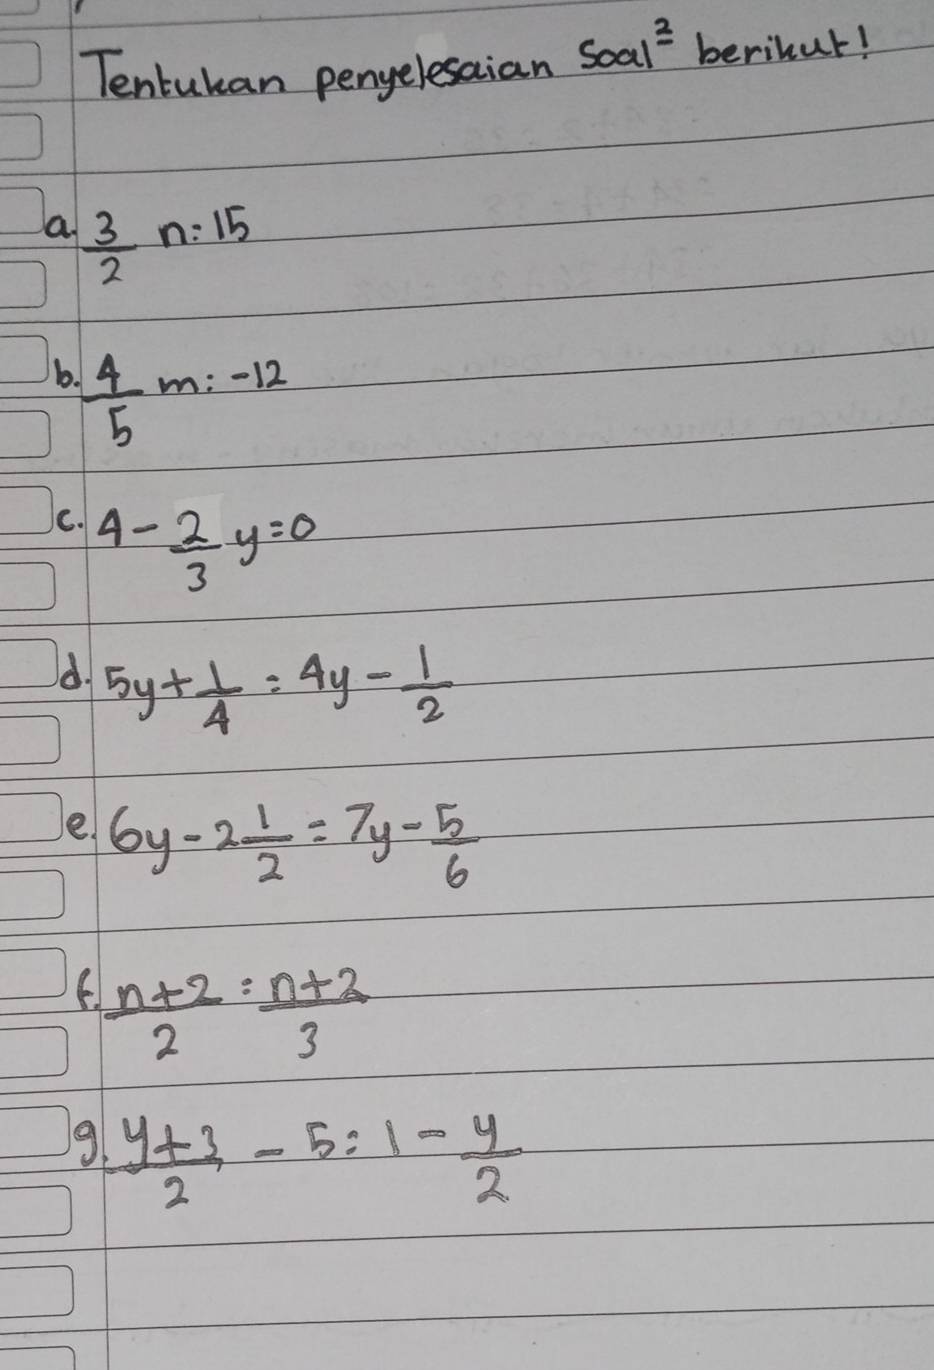 Tentukan penyelesaian Soal² berikut!
a. 3/2 n = 15
b. 4/5 m = -12
c. 4 - 2/3 y = 0
d. 5y + 1/4 = 4y - 1/2
e. 6y - 2 1/2 = 7y - 5/6
f. n+2/2 = n+2/3
g. y+3/2 - 5 = 1 - y/2